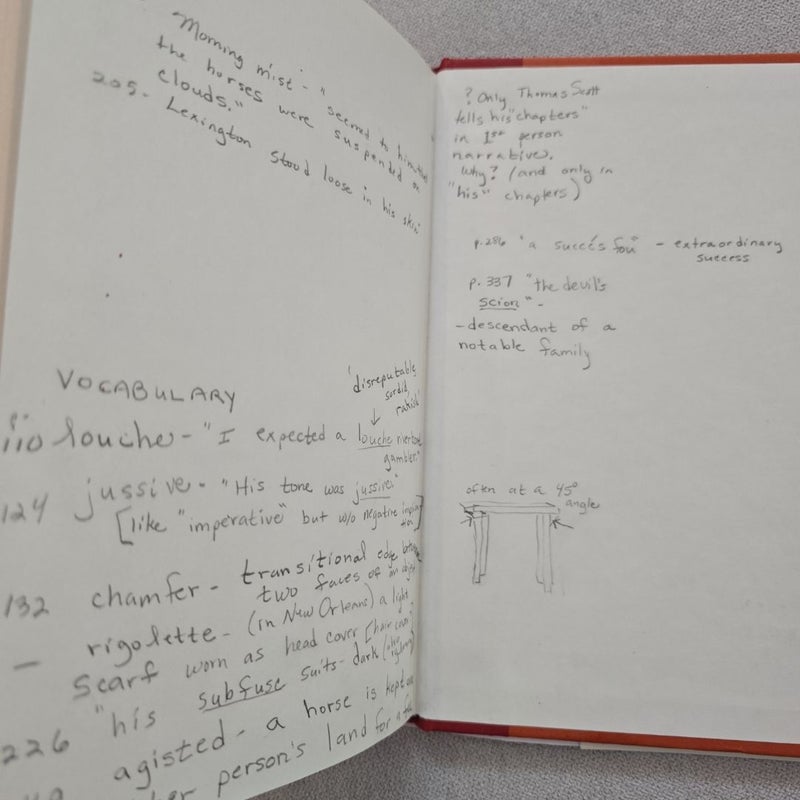 Morning mist - "seemed to him that
the horses were suspended on
clouds."
205. Lexington stood loose in his skin"
VOCABULARY
"disreputable,
sordid,
rakish"
110 louche - "I expected a louche riverboat
gambler."
124 jussive - "His tone was jussive."
[like "imperative" but w/o negative implica
tion]
132 chamfer - transitional edge between
two faces of an object
— rigolette - (in New Orleans) a light
scarf worn as head cover [hair cover]
226 "his subfuse suits - dark (also
agisted - a horse is kept on
person's land for a fee
? Only Thomas Scott
tells his "chapters"
in 1st person
narrative.
Why? (and only in
"his" chapters)
p.286 "a succés fou" - extraordinary
success
p. 337 "the devil's
scion" -
- descendant of a
notable family
often at a 45°
angle